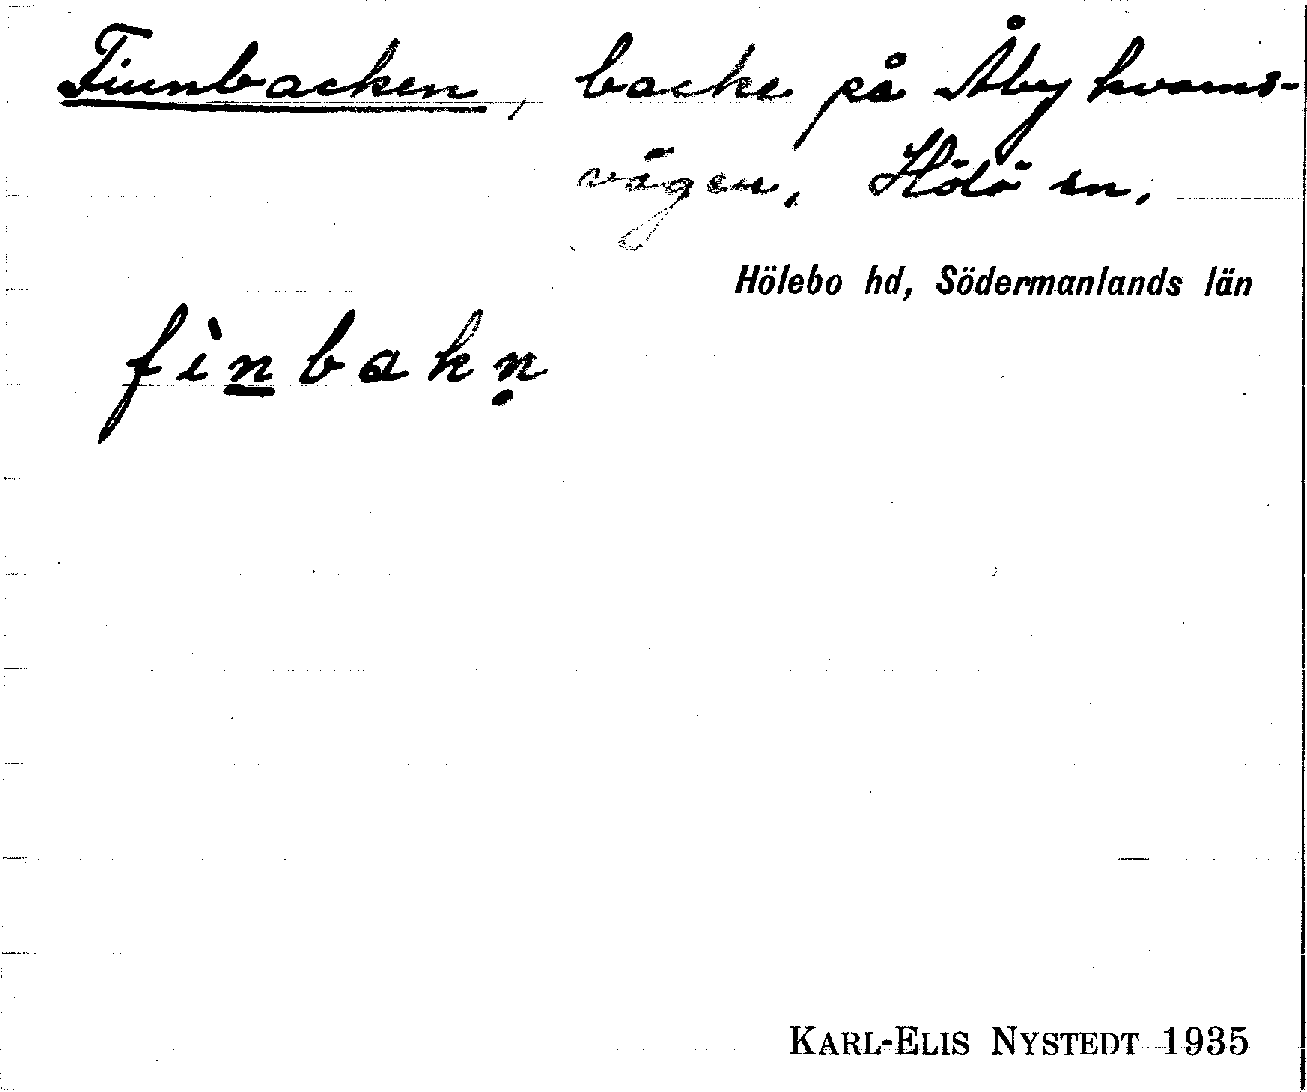 Finnbacken, backe på Åby kvarns-
vägen, Hölö sn.
Hölebo hd, Södermanlands län
fìn̲bakṇ
KARL-ELIS NYSTEDT 1935